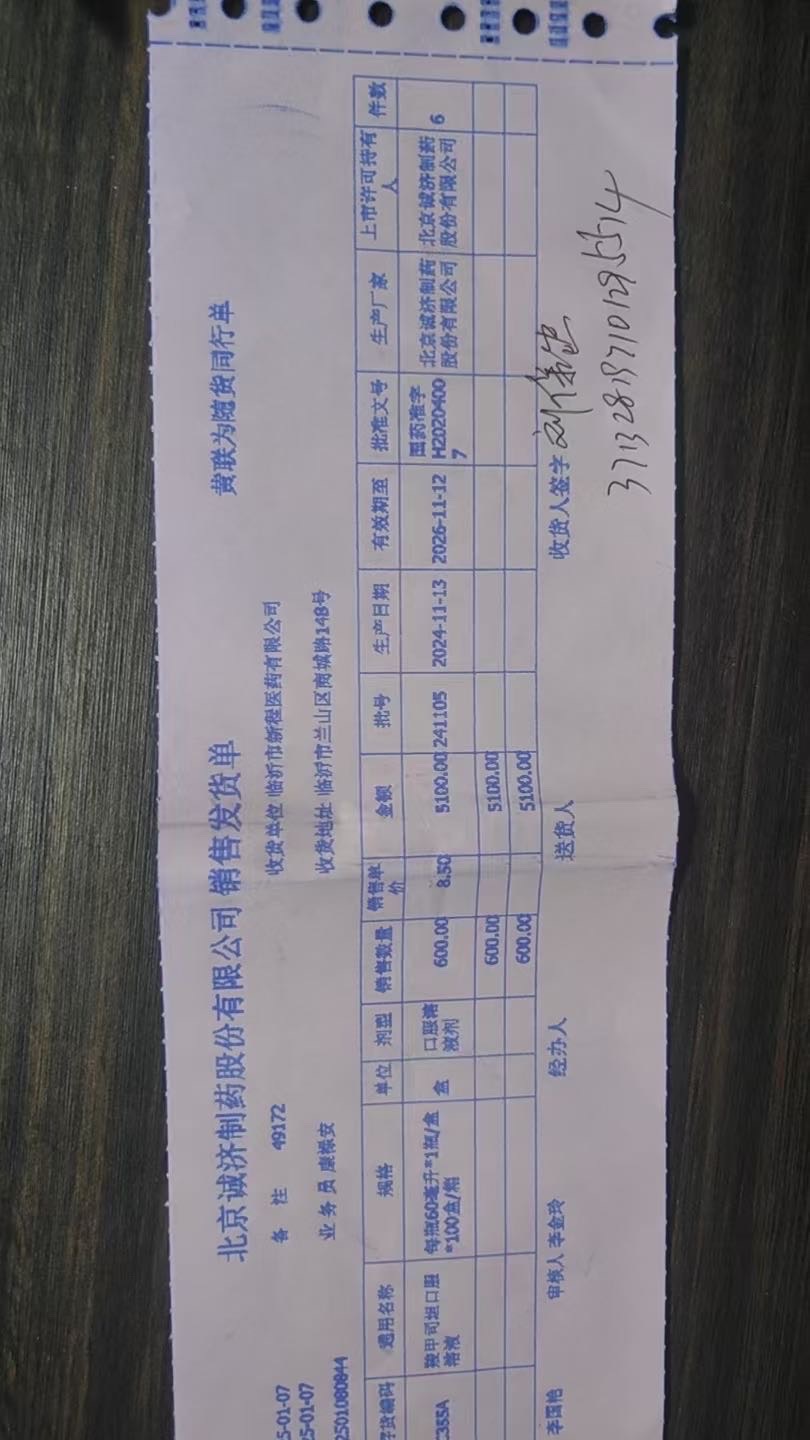 北京诚济制药股份有限公司 销售发货单 黄联为随货同行单
5-01-07 备 注 49172 收货单位 临沂市新程医药有限公司
25-01-07 业务员 康禄安 收货地址 临沂市兰山区商城路148号
2501080844
存货编码 通用名称 规格 单位 剂型 销售数量 销售单价 金额 批号 生产日期 有效期至 批准文号 生产厂家 上市许可持有人 件数
C355A 羧甲司坦口服溶液 每瓶60毫升*1瓶/盒*100盒/箱 盒 口服溶液剂 600.00 8.50 5100.00 241105 2024-11-13 2026-11-12 国药准字H20204007 北京诚济制药股份有限公司 北京诚济制药股份有限公司 6
600.00 5100.00
600.00 5100.00
李国艳 审核人 李金玲 经办人 送货人 收货人签字